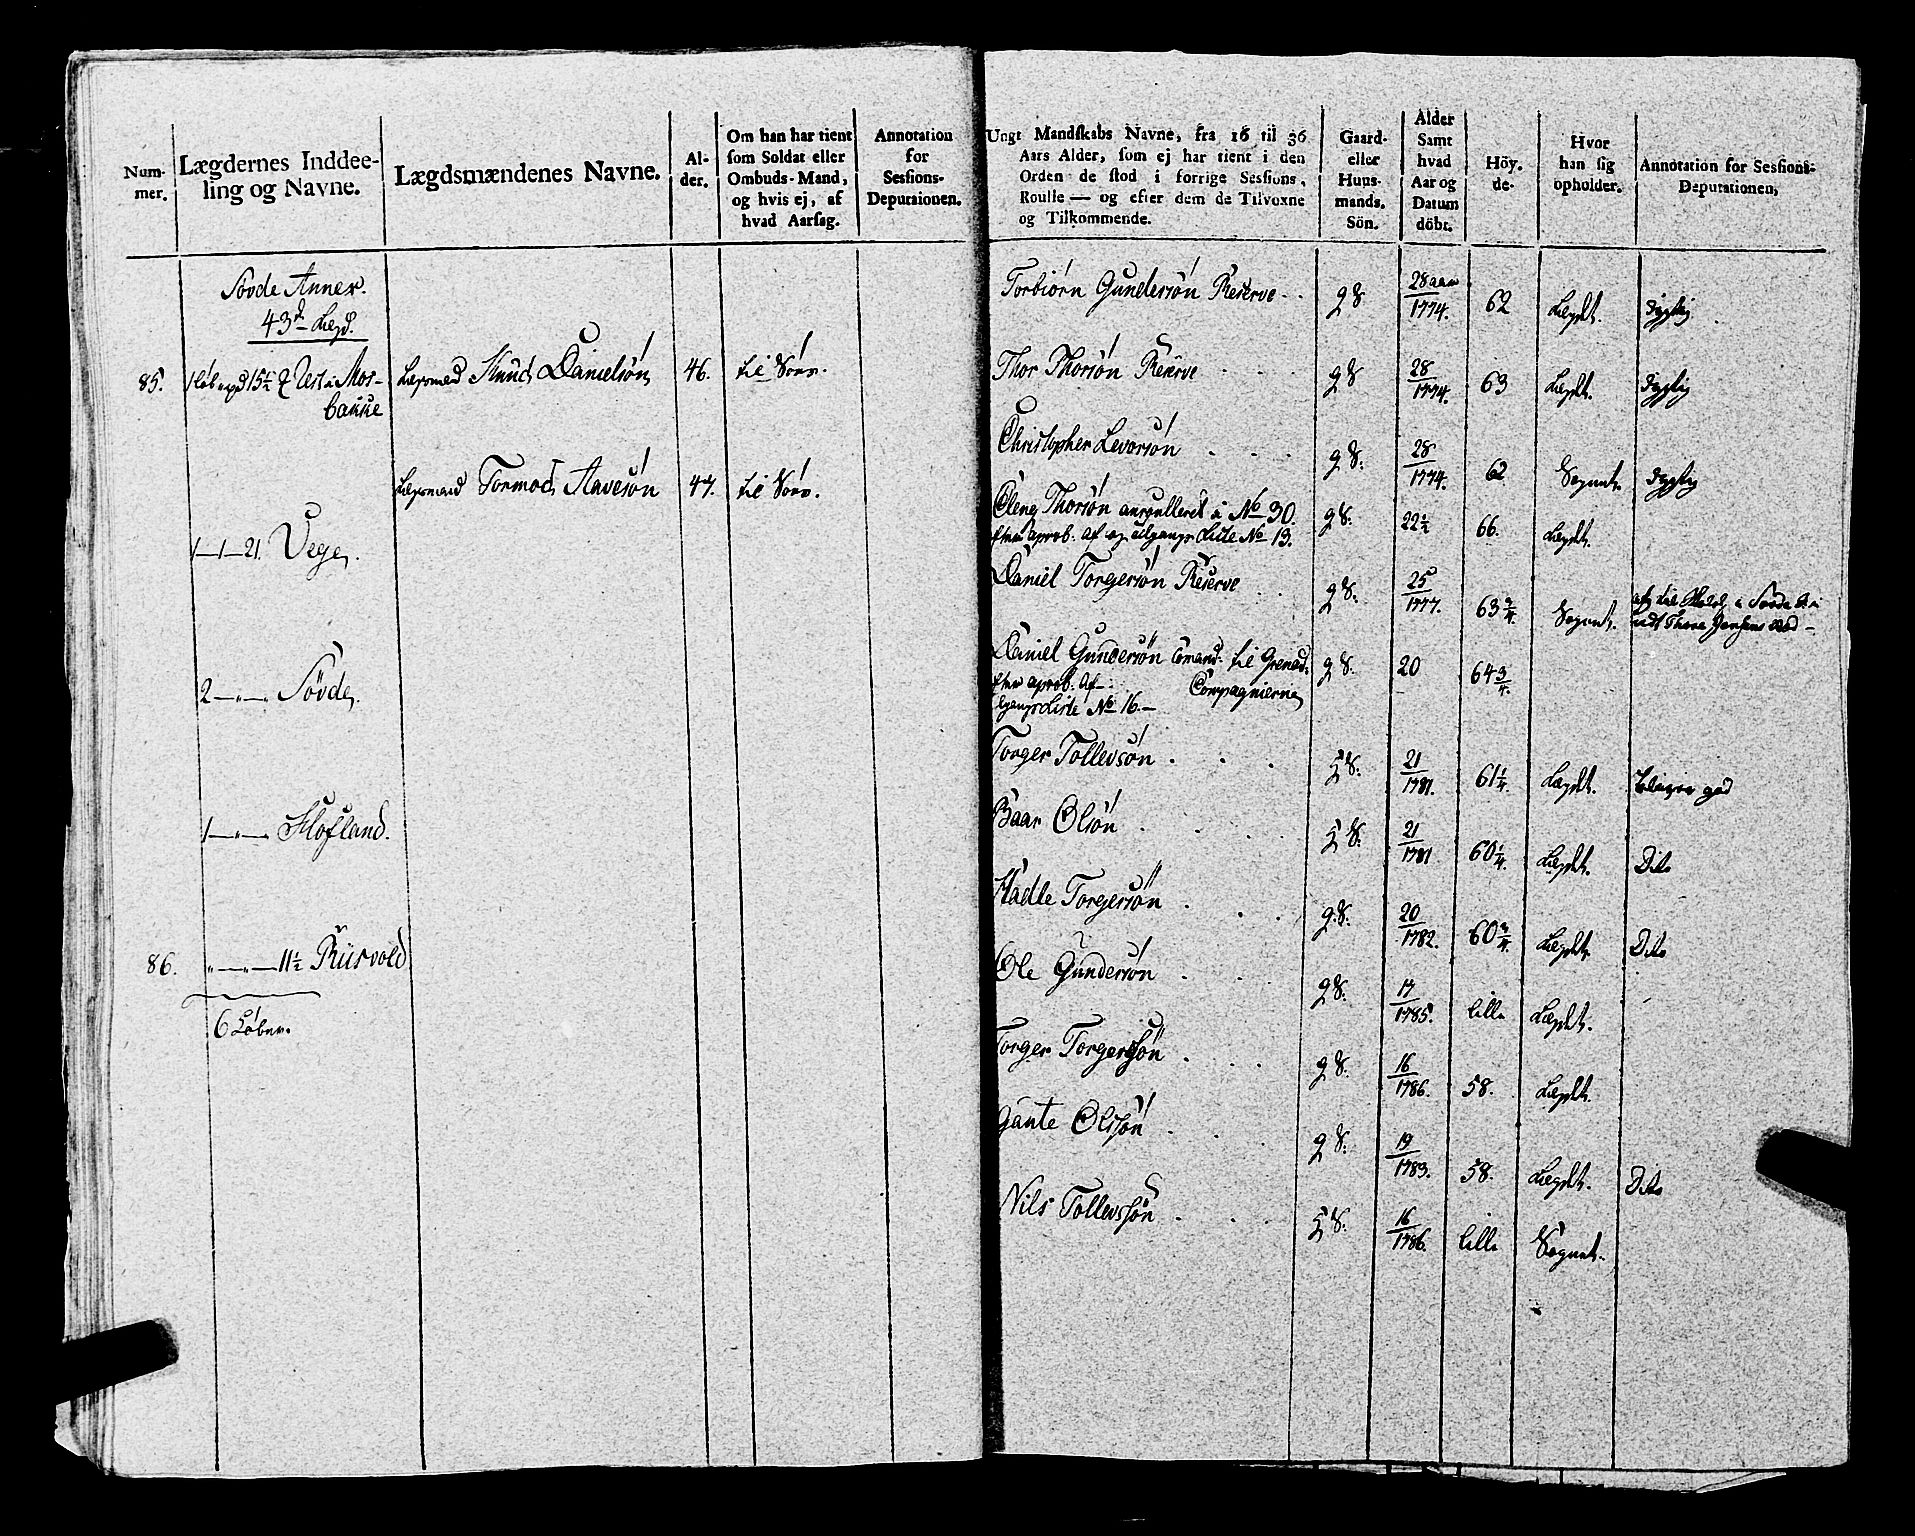 Num-
mer.
Lægdernes Inddee-
ling og Navne.
Lægdsmændenes Navne.
Al-
der.
Om han har tient
som Soldat eller
Ombuds-Mand,
og hvis ej, af
hvad Aarsag.
Annotation
for
Sessions-
Deputaionen.
Sövde Annex.
43d Lægd.
85.
Mos-
bakke
Lægsmand Knud Danielsön
46.
til Söes.
Lægsmand Tormod Aavesön
47.
til Söes.
1—1—21. Vege.
2—„—„ Sövde.
1—„—„ Hofland.
86.
„—„—11½ Riisvold
6 Løber.
Ungt Mandskabs Navne, fra 16 til 36
Aars Alder, som ej har tient i den
Orden de stod i forrige Sessions-
Roulle — og efter dem de Tilvoxne
og Tilkommende.
Gaard-
eller
Huus-
mands.
Sön.
Alder
Samt
hvad
Aar og
Datum
döbt.
Höy-
de.
Hvor
han sig
opholder.
Annotation for Sessions-
Deputationen.
Torbiörn Gundersön Reserve
g S.
28 aar
1774.
62
Lægdt.
dygtig
Thor Thorsön Reserve
g S
28
1774.
63
Lægdt.
dygtig
Christopher Levorsön
g S.
28
1774.
62
Sognet.
dygtig
Eleng Thorsön anroulleret i No 30.
aprob. af og udgangs Liste No 13.
g S.
22½
66.
Lægdt.
Daniel Torgersön Reserve
g S.
25
1777.
63¾
Sognet.
Daniel Gundersön Comand. til Grenad.
aprob. Af- Compagnierne
gangs Liste No 16.—
g S.
20
64¾
Torger Tollevsön
S.
21
1781.
61¼
Lægdt.
Baar Olsön
S.
21
1781
60¼
Lægdt.
Dito
Hadle Torgersön
g S.
20
1782.
60¾
Lægdt.
Dito
Ole Gundersön
g S.
17
1785.
lille
Lægdt.
Torger Torgersön
g S.
16
1786.
58.
Lægdt.
Gante Olssön
g S.
19
1783.
58.
Lægdt.
Dito
Nils Tollevssön
S.
16
1786.
lille
Sognet.